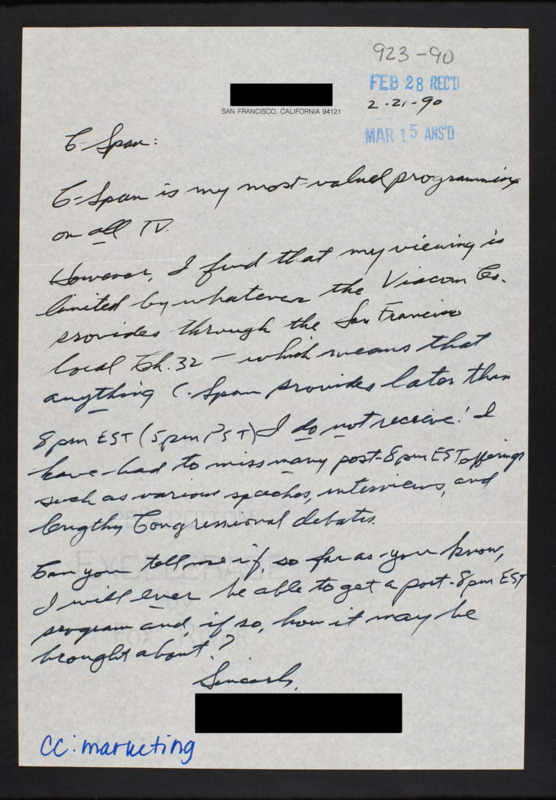 923-90
FEB 28 REC'D
2-21-90
MAR 15 ANS'D
SAN FRANCISCO, CALIFORNIA 94121
C-Span:
C-Span is my most-valued programming
on all TV.
However, I find that my viewing is
limited by whatever the Viacom Co.
provides through the San Francisco
local Ch. 32 – which means that
anything C-Span provides later than
8pm EST (5pm PST) I do not receive! I
have had to miss many post-8pm EST offerings
such as various speeches, interviews, and
lengthy Congressional debates.
Can you tell me if, so far as you know,
I will ever be able to get a post-8pm EST
program and, if so, how it may be
brought about?
Sincerely,
CC: marketing